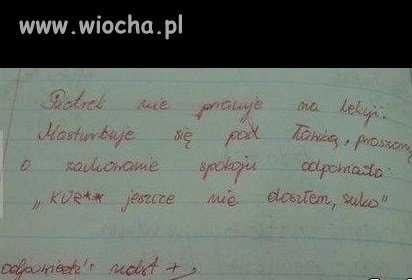 www.wiocha.pl
Piotrek nie pracuje na lekcji.
Masturbuje się pod ławką, proszony
o zachowanie spokoju odpowiada
„KUR** jeszcze nie doszłem, suko"
odpowiedź: